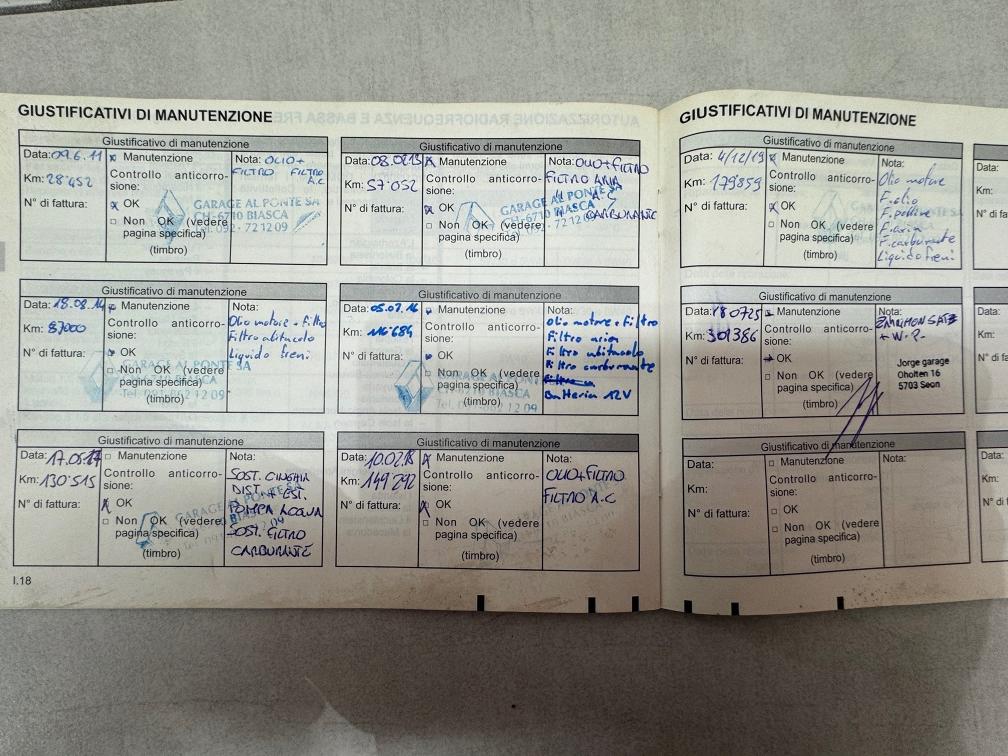 GIUSTIFICATIVI DI MANUTENZIONE
Giustificativo di manutenzione
Data: 09.6.11
Km: 28'452
N° di fattura:
Manutenzione
Controllo anticorro-
sione:
OK
Non OK (vedere
pagina specifica)
(timbro)
Nota: OLIO+
FILTRO FILTRO
A.C
GARAGE AL PONTE SA
CH-6710 BIASCA
72 12 09
Giustificativo di manutenzione
Data: 08.02.13
Km: 57'052
N° di fattura:
Manutenzione
Controllo anticorro-
sione:
OK
Non OK (vedere
pagina specifica)
(timbro)
Nota: OLIO+FILTRO
FILTRO ARIA
A.C
CARBURANTE
GARAGE AL PONTE SA
CH-6710 BIASCA
72 12 09
Giustificativo di manutenzione
Data: 18.08.14
Km: 87000
N° di fattura:
Manutenzione
Controllo anticorro-
sione:
OK
Non OK (vedere
pagina specifica)
(timbro)
Nota:
Olio motore + Filtro
Filtro abitacolo
Liquido freni
GARAGE AL PONTE SA
CH-6710 BIASCA
Giustificativo di manutenzione
Data: 05.07.16
Km: 116'684
N° di fattura:
Manutenzione
Controllo anticorro-
sione:
OK
Non OK (vedere
pagina specifica)
(timbro)
Nota:
Olio motore + Filtro
Filtro aria
Filtro abitacolo
Filtro carburante
Batteria 12V
Giustificativo di manutenzione
Data: 17.05.17
Km: 130'515
N° di fattura:
Manutenzione
Controllo anticorro-
sione:
OK
Non OK (vedere
pagina specifica)
(timbro)
Nota:
SOST. CINGHIA
DIST. + EST.
POMPA ACQUA
SOST. FILTRO
CARBURANTE
Giustificativo di manutenzione
Data: 10.02.18
Km: 149'292
N° di fattura:
Manutenzione
Controllo anticorro-
sione:
OK
Non OK (vedere
pagina specifica)
(timbro)
Nota:
OLIO+FILTRO
FILTRO A.C
I.18
GIUSTIFICATIVI DI MANUTENZIONE
Giustificativo di manutenzione
Data: 4/12/19
Km: 179'859
N° di fattura:
Manutenzione
Controllo anticorro-
sione:
OK
Non OK (vedere
pagina specifica)
(timbro)
Nota:
Olio motore
F. olio
F. polline
F. aria
F. carburante
Liquido freni
Giustificativo di manutenzione
Data: 180725
Km: 301386
N° di fattura:
Manutenzione
Controllo anticorro-
sione:
OK
Non OK (vedere
pagina specifica)
(timbro)
Nota:
+ W.P.
Jorge garage
Oholten 16
5703 Seon
Giustificativo di manutenzione
Data:
Km:
N° di fattura:
Manutenzione
Controllo anticorro-
sione:
OK
Non OK (vedere
pagina specifica)
(timbro)
Nota:
Data:
Km:
N° di fa
Data:
Km:
N° di fa
Data:
Km:
N° di